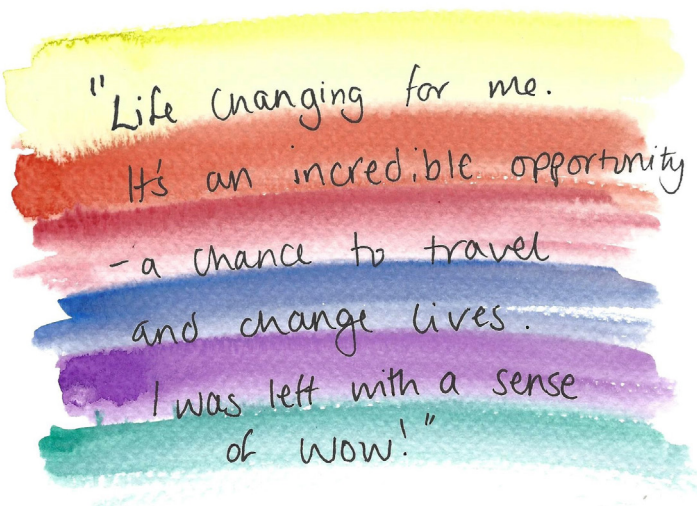 "Life changing for me.
It's an incredible opportunity
- a chance to travel
and change lives.
I was left with a sense
of wow!"